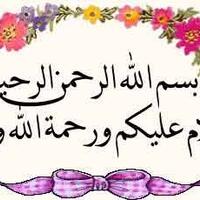 بسم الله الرحمن الرحي
لام عليكم ورحمة الله و